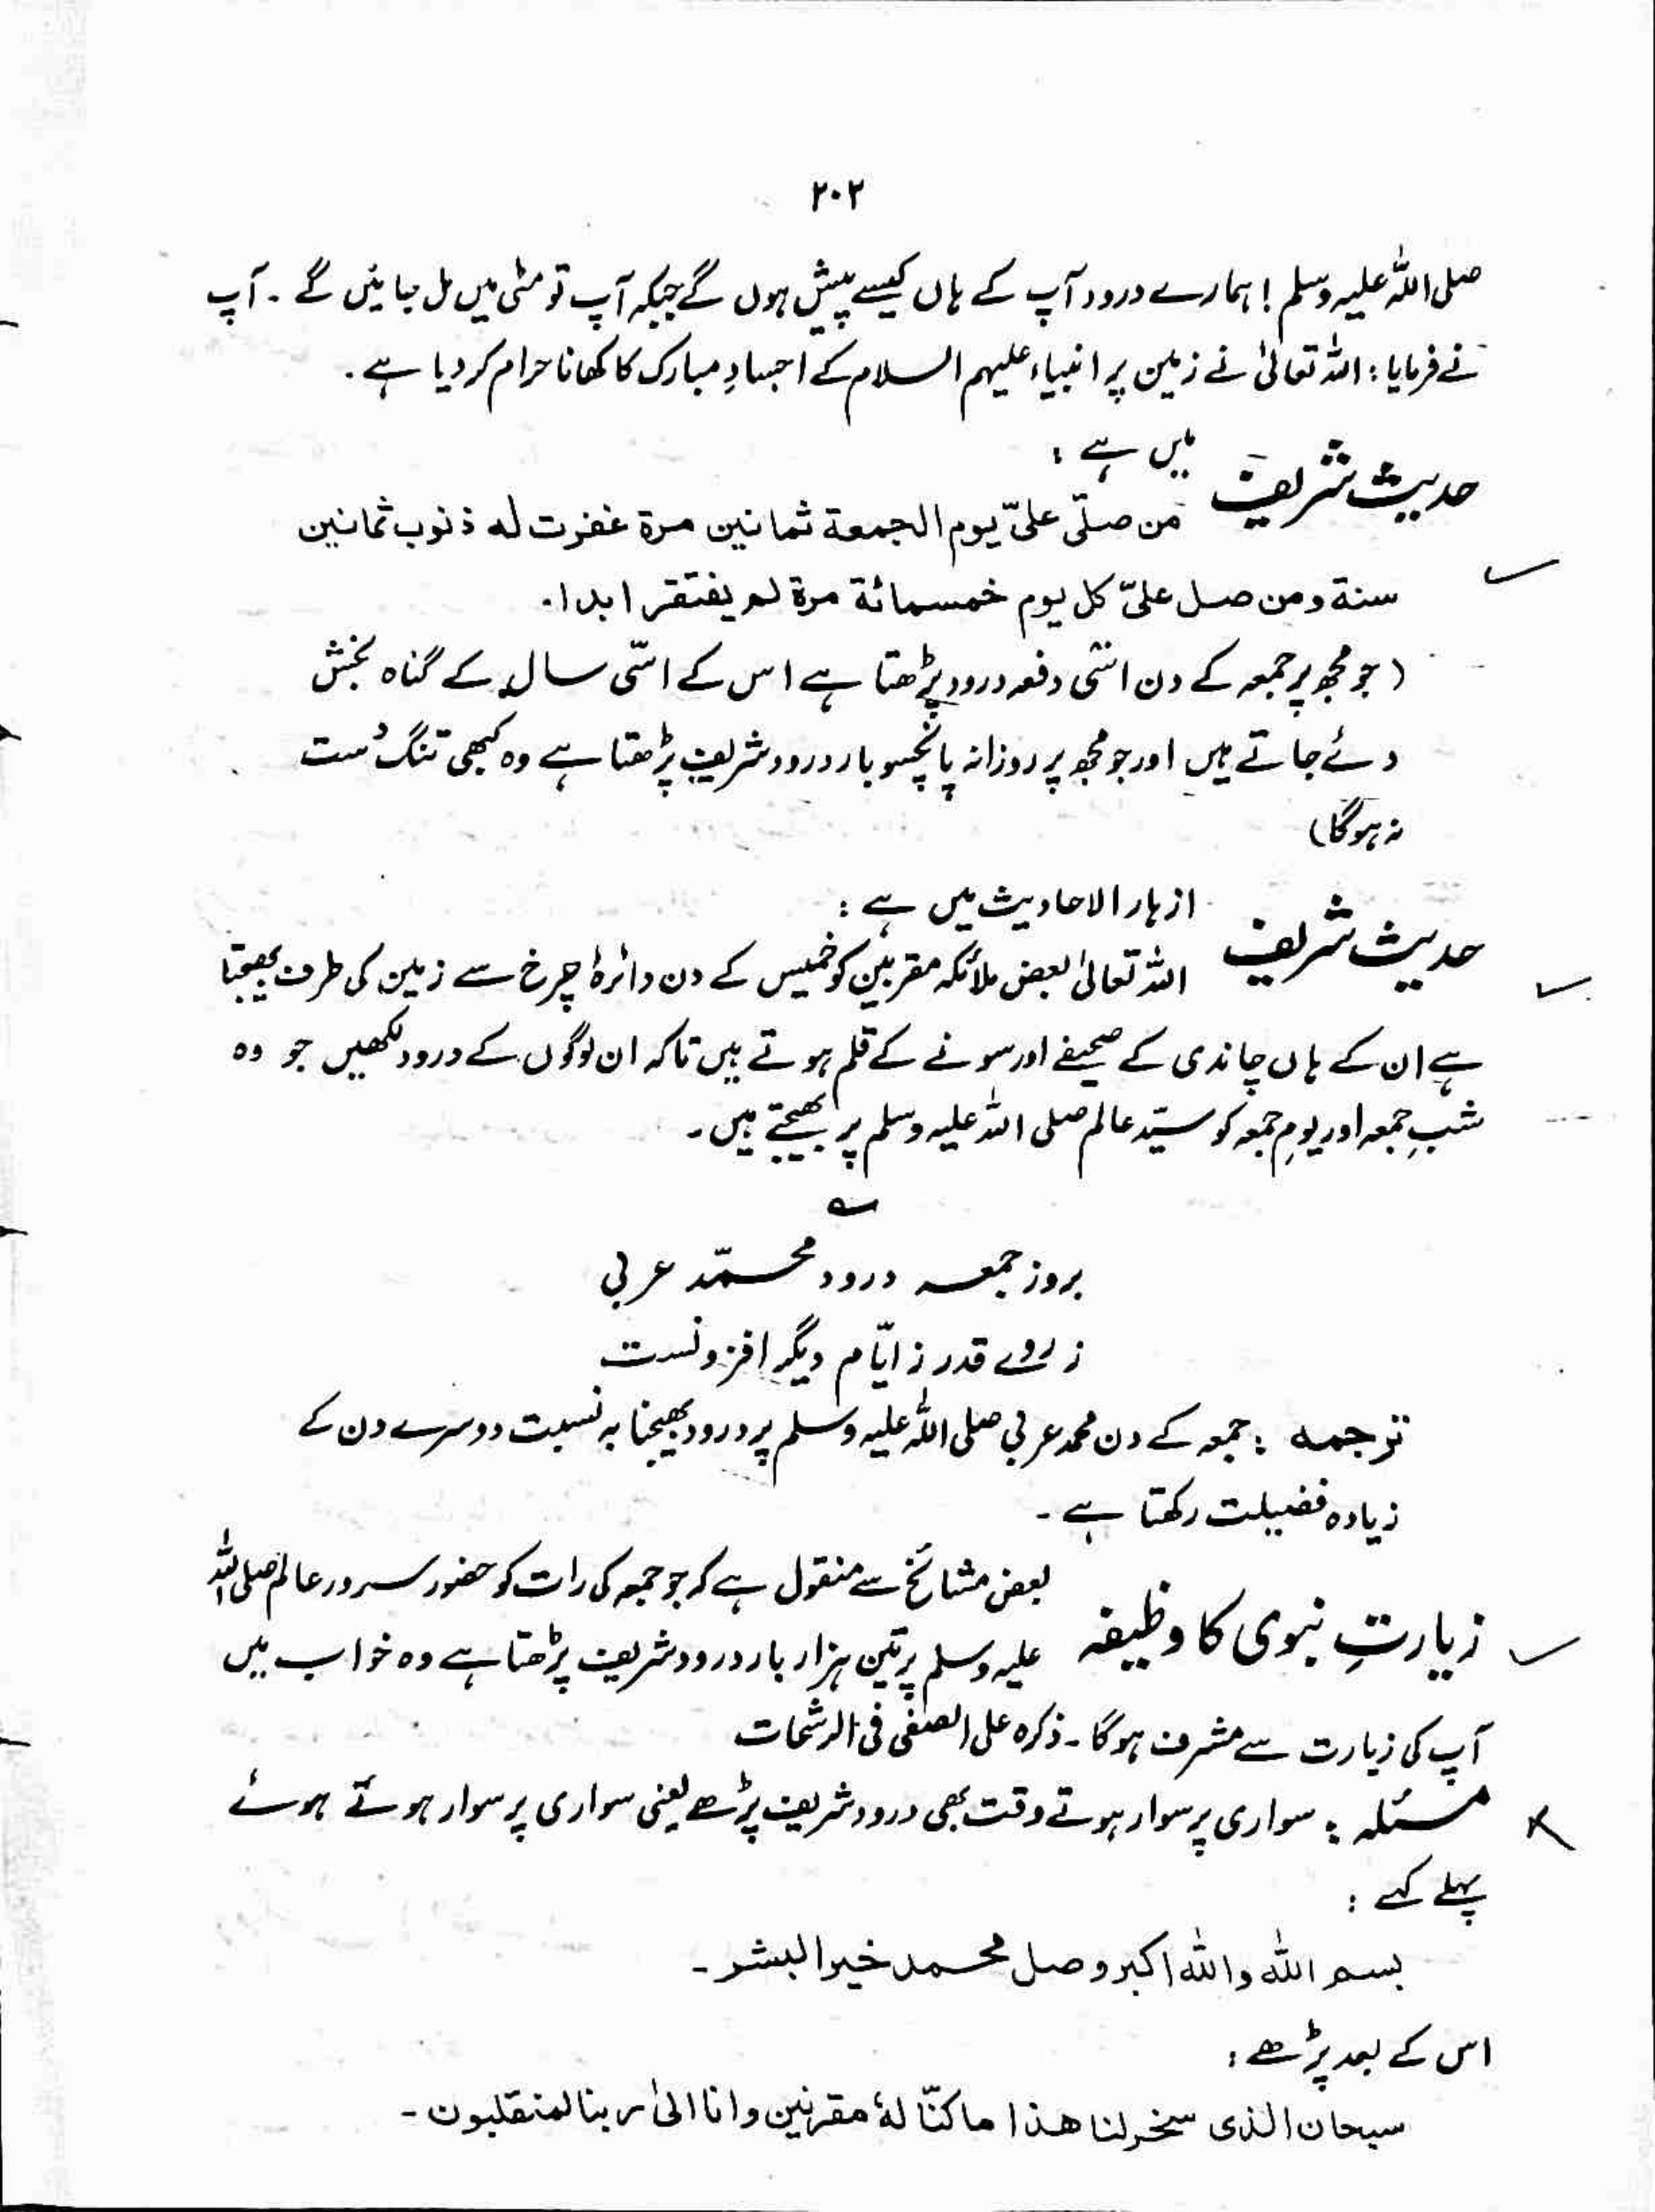 ۲۰۲
صلی اللہ علیہ وسلم! ہمارے درود آپ کے ہاں کیسے پیش ہوں گے جبکہ آپ تو مٹی میں مل جائیں گے ۔ آپ
نے فرمایا : اللہ تعالیٰ نے زمین پر انبیاء علیہم السلام کے اجسادِ مبارک کا کھانا حرام کر دیا ہے ۔
حدیث شریف میں ہے :
من صلّی علیّ یوم الجمعة ثمانین مرة غفرت له ذنوب ثمانین
سنة ومن صل علیّ کل یوم خمسمائة مرة لم یفتقر ابدا۔
(جو مجھ پر جمعہ کے دن اسّی دفعہ درود پڑھتا ہے اس کے اسّی سال کے گناہ بخش
دئے جاتے ہیں اور جو مجھ پر روزانہ پانچسو بار درود شریف پڑھتا ہے وہ کبھی تنگ دست
نہ ہوگا)
حدیث شریف ازہار الاحادیث میں ہے :
اللہ تعالیٰ بعض ملائکہ مقربین کو خمیس کے دن دائرۂ چرخ سے زمین کی طرف بھیجتا
ہے ان کے ہاں چاندی کے صحیفے اور سونے کے قلم ہوتے ہیں تاکہ ان لوگوں کے درود لکھیں جو وہ
شبِ جمعہ اور یومِ جمعہ کو سیّد عالم صلی اللہ علیہ وسلم پر بھیجتے ہیں ۔
؎
بروز جمعہ درود محمّد عربی
ز روے قدر ز ایّام دیگر افزونست
ترجمہ : جمعہ کے دن محمد عربی صلی اللہ علیہ وسلم پر درود بھیجنا بہ نسبت دوسرے دن کے
زیادہ فضیلت رکھتا ہے ۔
زیارتِ نبوی کا وظیفہ بعض مشائخ سے منقول ہے کہ جو جمعہ کی رات کو حضور سرور عالم صلی اللہ
علیہ وسلم پر تین ہزار بار درود شریف پڑھتا ہے وہ خواب میں
آپ کی زیارت سے مشرف ہوگا ۔ ذکرہ علی الصفی فی الرشحات
مسئلہ : سواری پر سوار ہوتے وقت بھی درود شریف پڑھے یعنی سواری پر سوار ہوتے ہوئے
پہلے کہے :
بسم اللہ واللہ اکبر وصل محمد خیر البشر ۔
اس کے بعد پڑھے :
سبحان الذی سخر لنا هذا ما کنّا لهٗ مقرنین وانا الیٰ ربنا لمنقلبون ۔